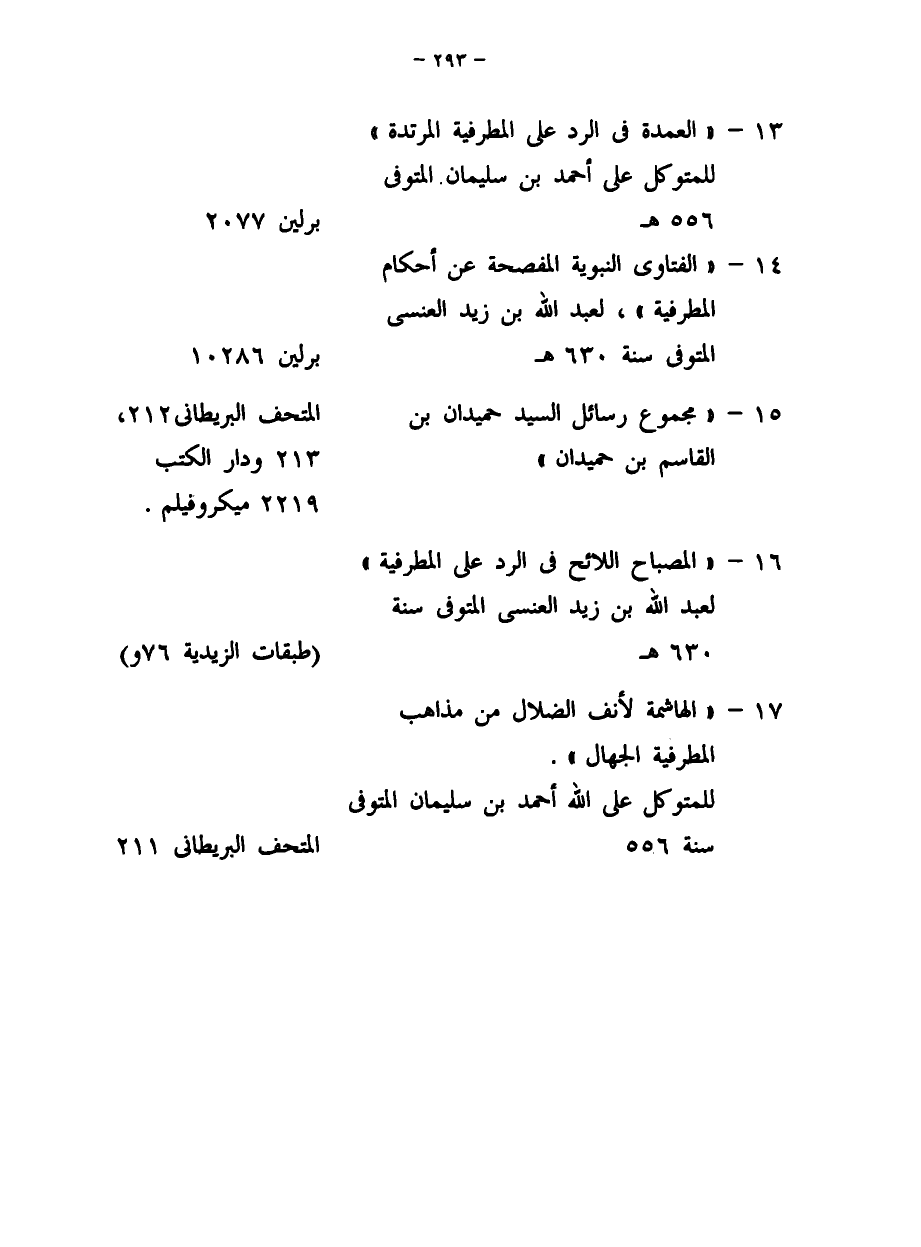 – ٢٩٣ –
١٣ – « العمدة فى الرد على المطرفية المرتدة »
للمتوكل على أحمد بن سليمان المتوفى
٥٥٦ هـ برلين ٢٠٧٧
١٤ – « الفتاوى النبوية المفصحة عن أحكام
المطرفية » ، لعبد الله بن زيد العنسى
المتوفى سنة ٦٣٠ هـ برلين ١٠٢٨٦
١٥ – « مجموع رسائل السيد حميدان بن المتحف البريطانى ٢١٢،
القاسم بن حميدان » ٢١٣ ودار الكتب
٢٢١٩ ميكروفيلم .
١٦ – « المصباح اللائح فى الرد على المطرفية »
لعبد الله بن زيد العنسى المتوفى سنة
٦٣٠ هـ (طبقات الزيدية ٧٦و)
١٧ – « الهاشمة لأنف الضلال من مذاهب
المطرفية الجهال » .
للمتوكل على الله أحمد بن سليمان المتوفى
سنة ٥٥٦ المتحف البريطانى ٢١١